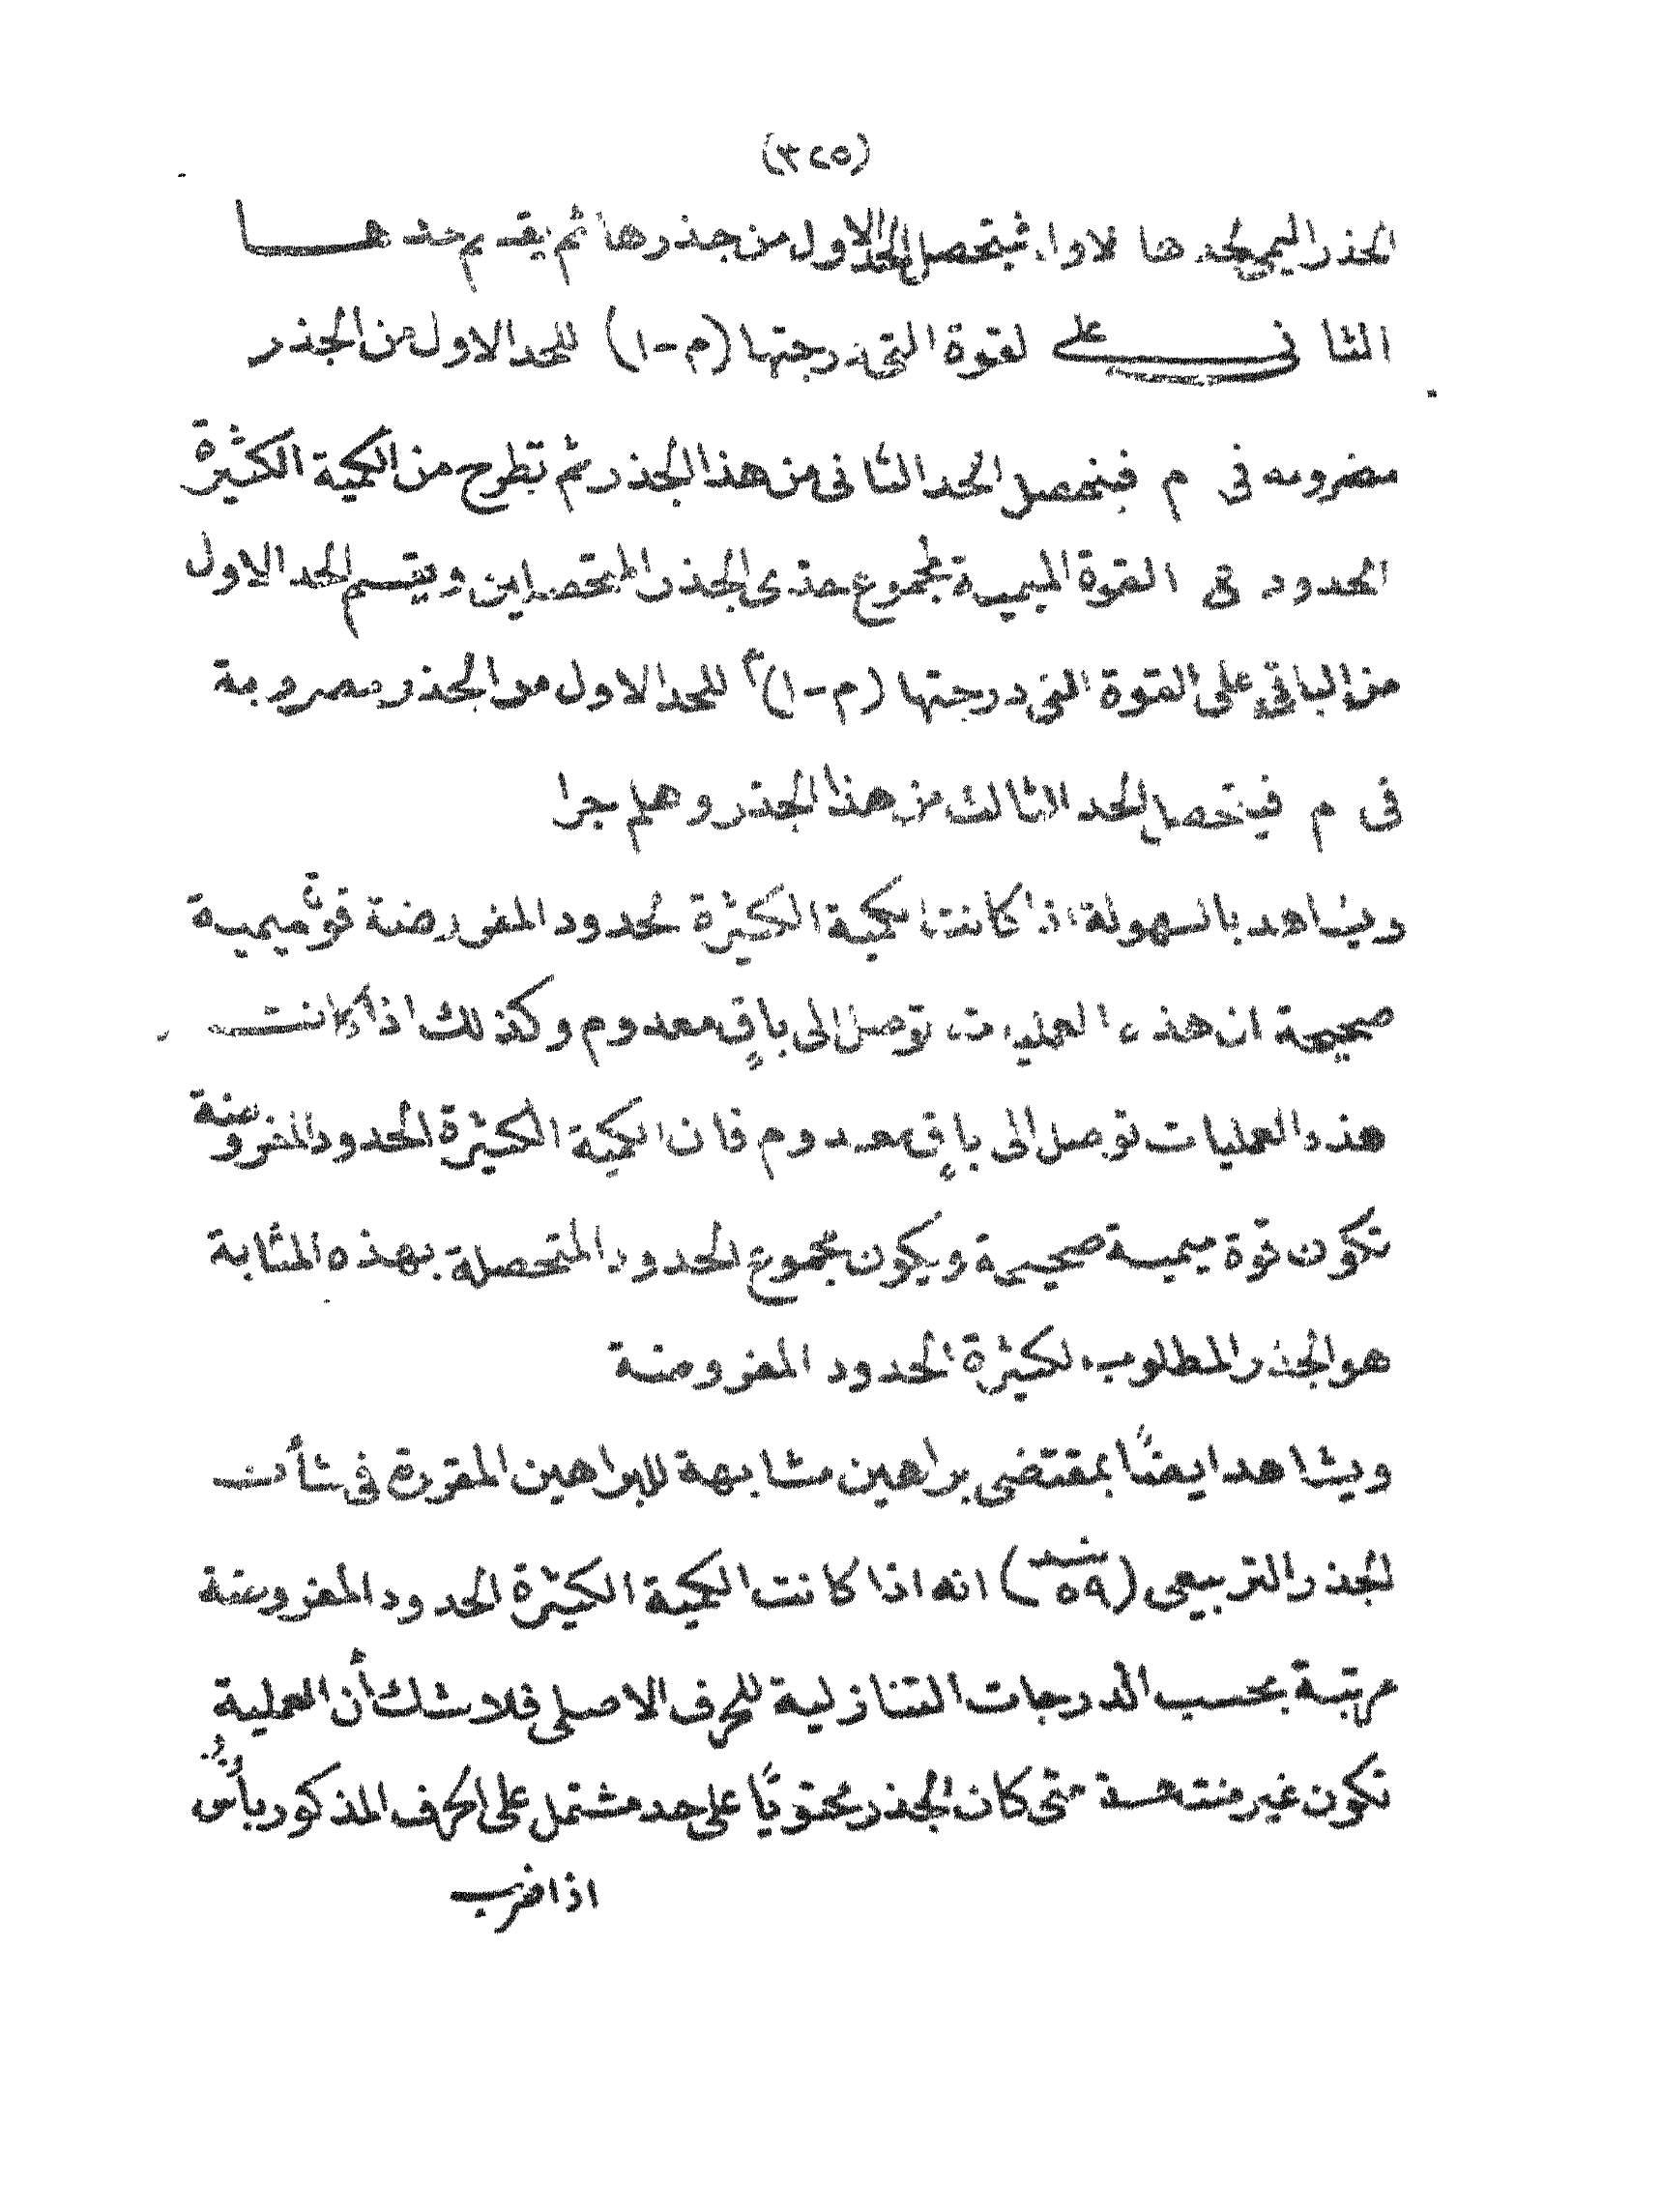 (٣٢٥)
الجذر الميمى لحدها الاول فيتحصل الحد الاول من جذرها ثم يقسم حدها
الثانى على القوة التى درجتها (م-١) للحد الاول من الجذر
مضروبه فى م فيتحصل الحد الثانى من هذا الجذر ثم تطرح من الكمية الكثيرة
الحدود القوة الميمية لمجموع حدى الجذر المتحصلين ويقسم الحد الاول
من الباقى على القوة التى درجتها (م-١) للحد الاول من الجذر مضروبة
فى م فيتحصل الحد الثالث من هذا الجذر وهلم جرا
ويشاهد بالسهولة اذا كانت الكمية الكثيرة الحدود المفروضة قوة ميمية
صحيحة ان هذه العمليات توصل الى باقٍ معدوم وكذلك اذا كانت
هذه العمليات توصل الى باقٍ معدوم فان الكمية الكثيرة الحدود المفروضة
تكون قوة ميمية صحيحة ويكون مجموع الحدود المتحصلة بهذه المثابة
هو الجذر المطلوب لكثيرة الحدود المفروضة
ويشاهد ايضًا بمقتضى براهين مشابهة للبراهين المقررة فى شأن
الجذر التربيعى (بند ٥٩) انه اذا كانت الكمية الكثيرة الحدود المفروضة
مرتبة بحسب الدرجات التنازلية للحرف الاصلى فلا شك أن العملية
تكون غير منتهية متى كان الجذر محتويًا على حد مشتمل على الحرف المذكور بأس
اذا ضرب